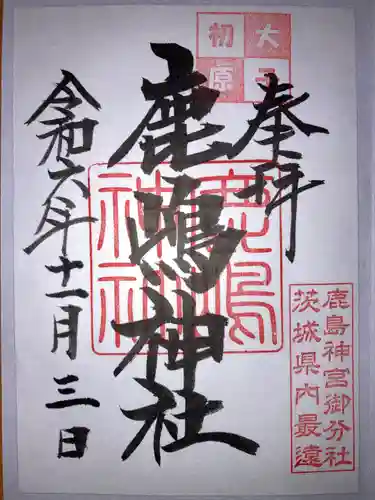 奉拝
大子
初原
鹿嶋神社
鹿嶋
神社
令和六年十一月三日
鹿島神宮御分社
茨城県内最遠